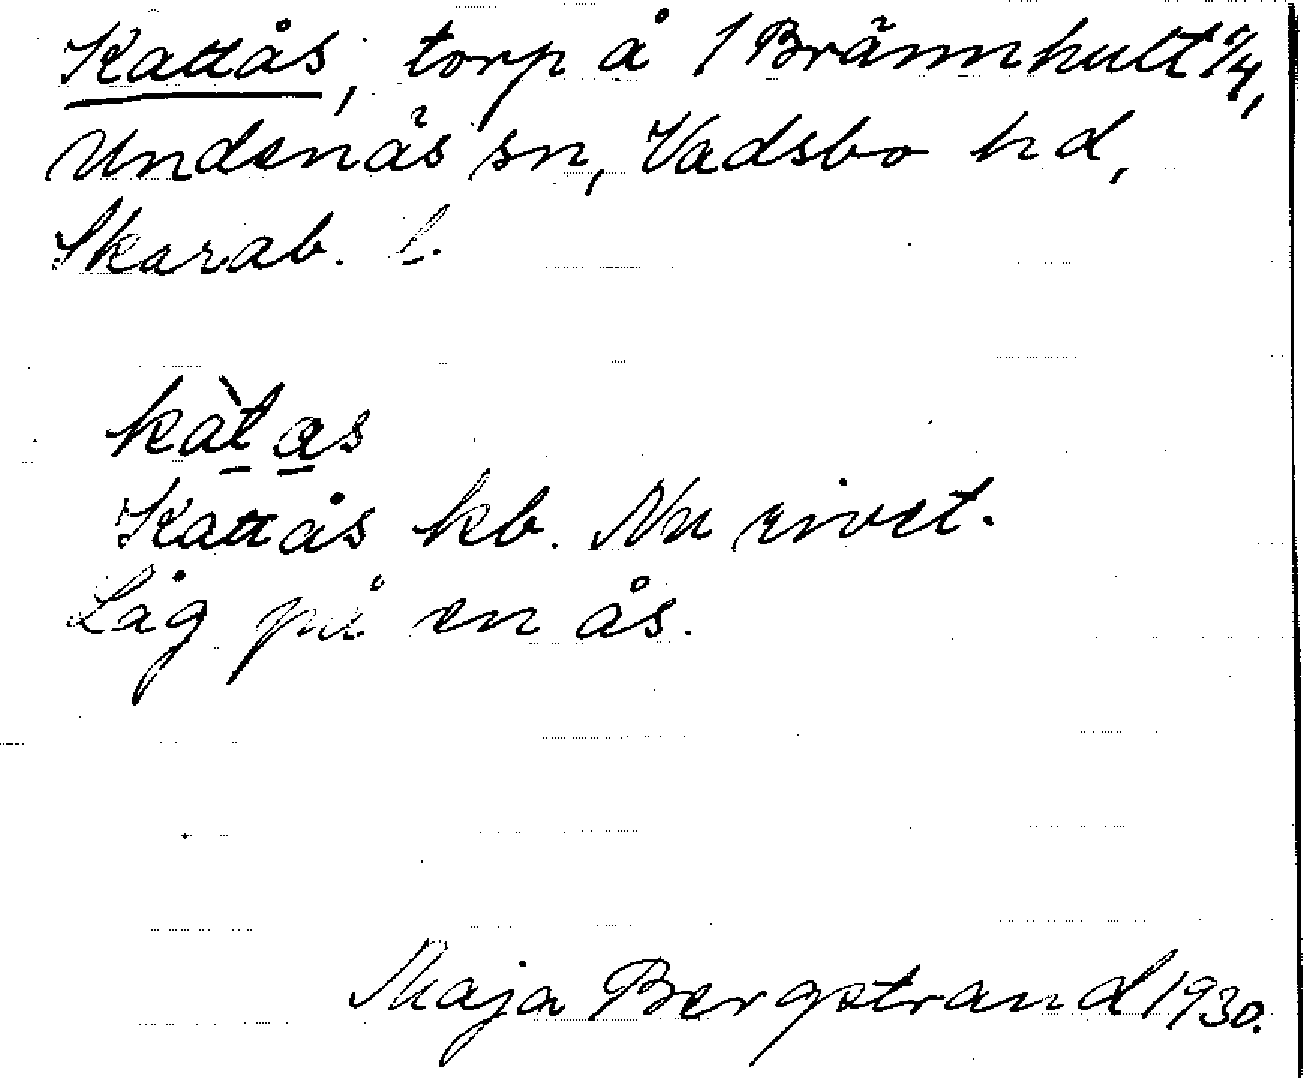 Kattås, torp å 1 Brännhult 1/4,
Undenäs sn, Vadsbo hd,
Skarab. l.
kàtas
Kattås kb. Nu rivet.
Låg på en ås.
Maja Bergstrand 1930.